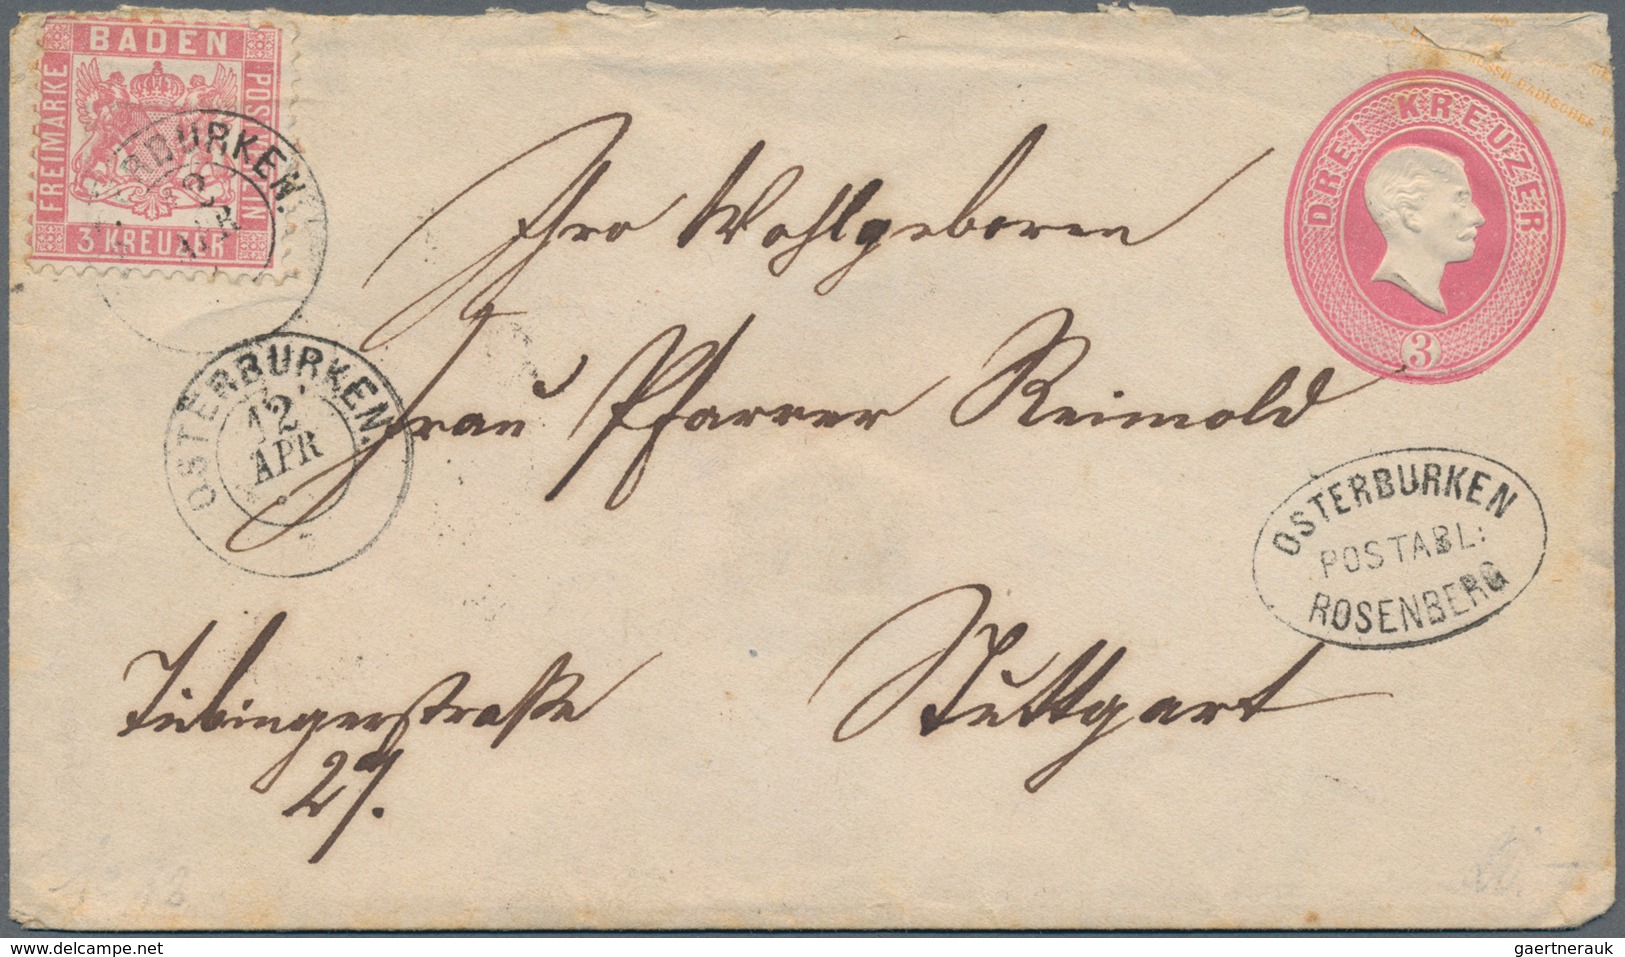 BADEN
FREIMARKE
POSTVEREIN
3 KREUZER
RBURKEN.
12
APR
DREI KREUZER
3
Ihro Wohlgeboren
Frau Pfarrer Reimold
OSTERBURKEN.
12
APR
OSTERBURKEN
POSTABL:
ROSENBERG
Tübingerstraße
Stuttgart
27.
www.delcampe.net
gaertnerauk